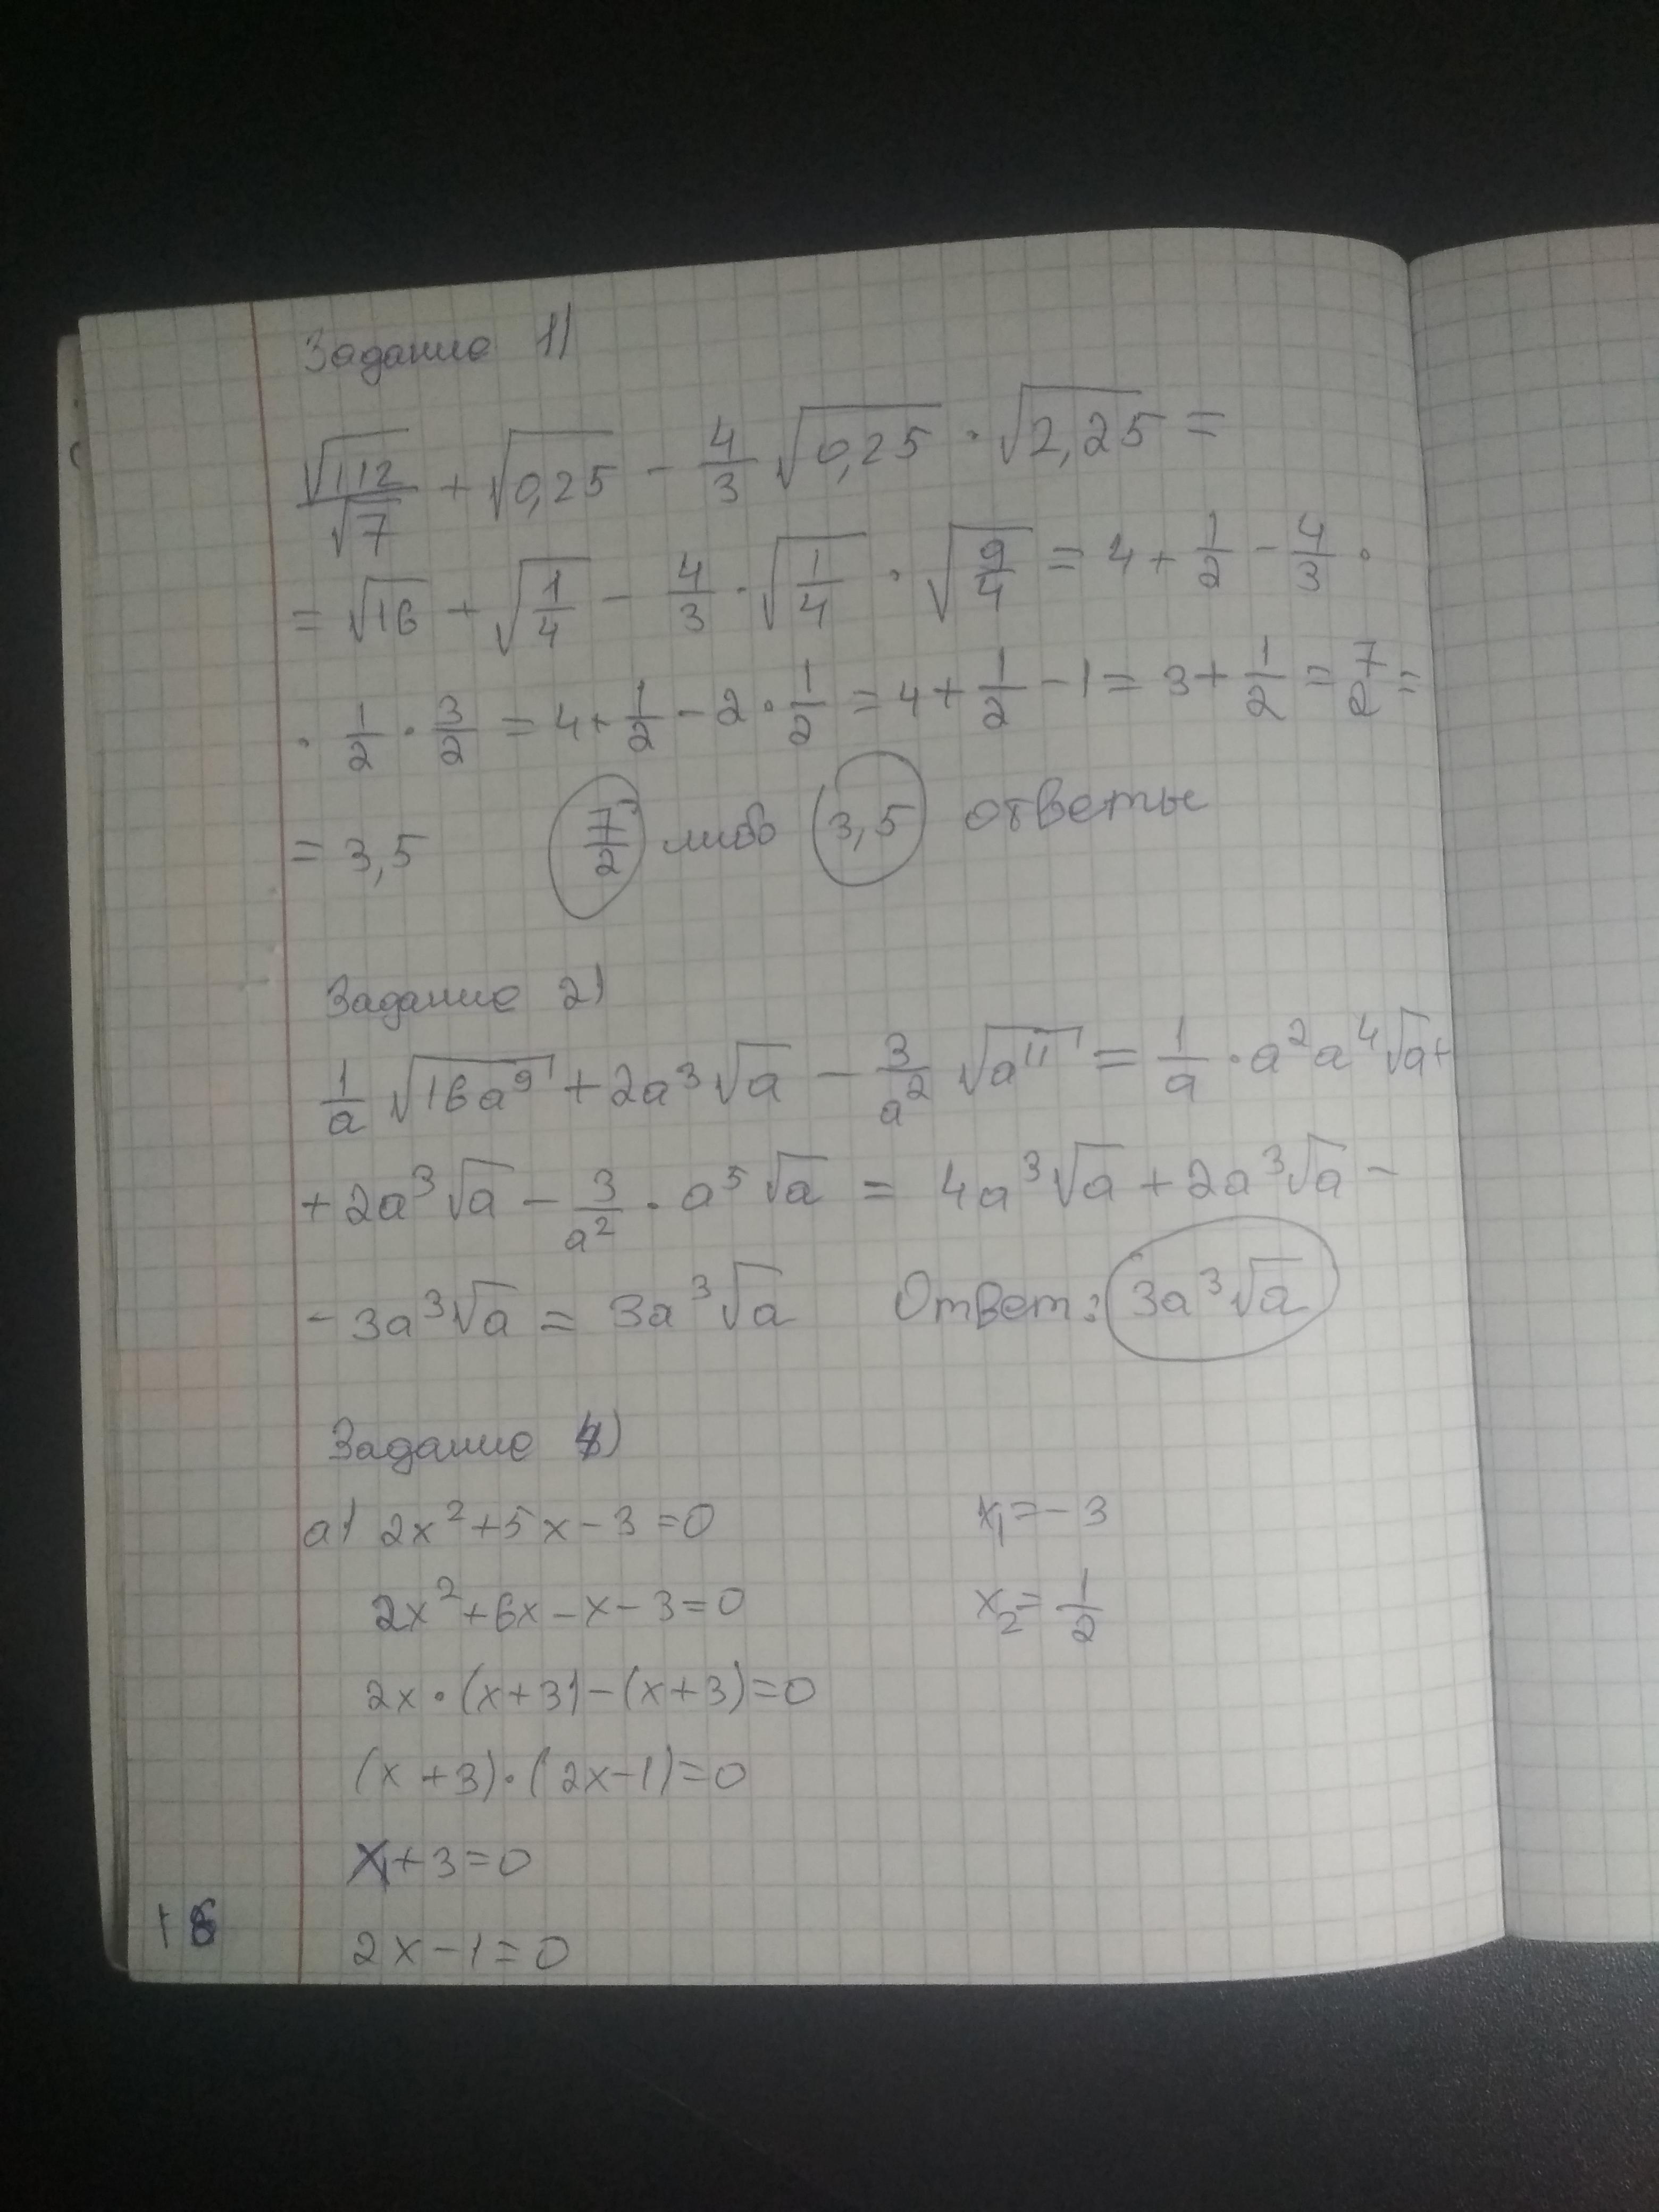 Задание 1)
√112/√7 + √0,25 - 4/3 √0,25 · √2,25 =
= √16 + √(1/4) - 4/3 · √(1/4) · √(9/4) = 4 + 1/2 - 4/3 ·
· 1/2 · 3/2 = 4 + 1/2 - 2 · 1/2 = 4 + 1/2 - 1 = 3 + 1/2 = 7/2 =
= 3,5 7/2 либо 3,5 ответы
Задание 2)
1/a √(16a⁹) + 2a³√a - 3/a² √(a¹¹) = 1/a · a²a⁴√a +
+ 2a³√a - 3/a² · a⁵√a = 4a³√a + 2a³√a -
- 3a³√a = 3a³√a Ответ: 3a³√a
Задание 4)
а) 2x² + 5x - 3 = 0 x₁ = - 3
2x² + 6x - x - 3 = 0 x₂ = 1/2
2x · (x + 3) - (x + 3) = 0
(x + 3) · (2x - 1) = 0
x + 3 = 0
2x - 1 = 0